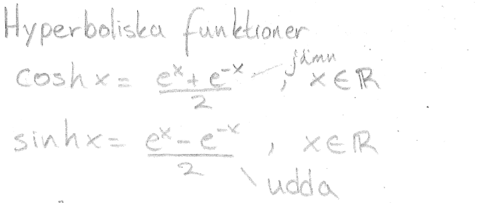 Hyperboliska funktioner
cosh x = (e^x + e^-x)/2 , jämn x ∈ ℝ
sinh x = (e^x - e^-x)/2 , x ∈ ℝ
udda